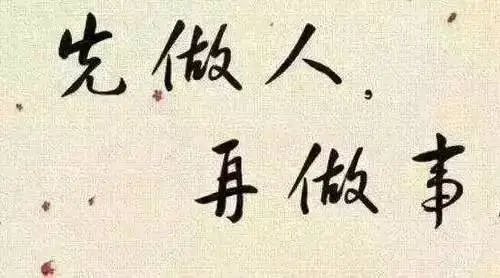 先做人，
再做事